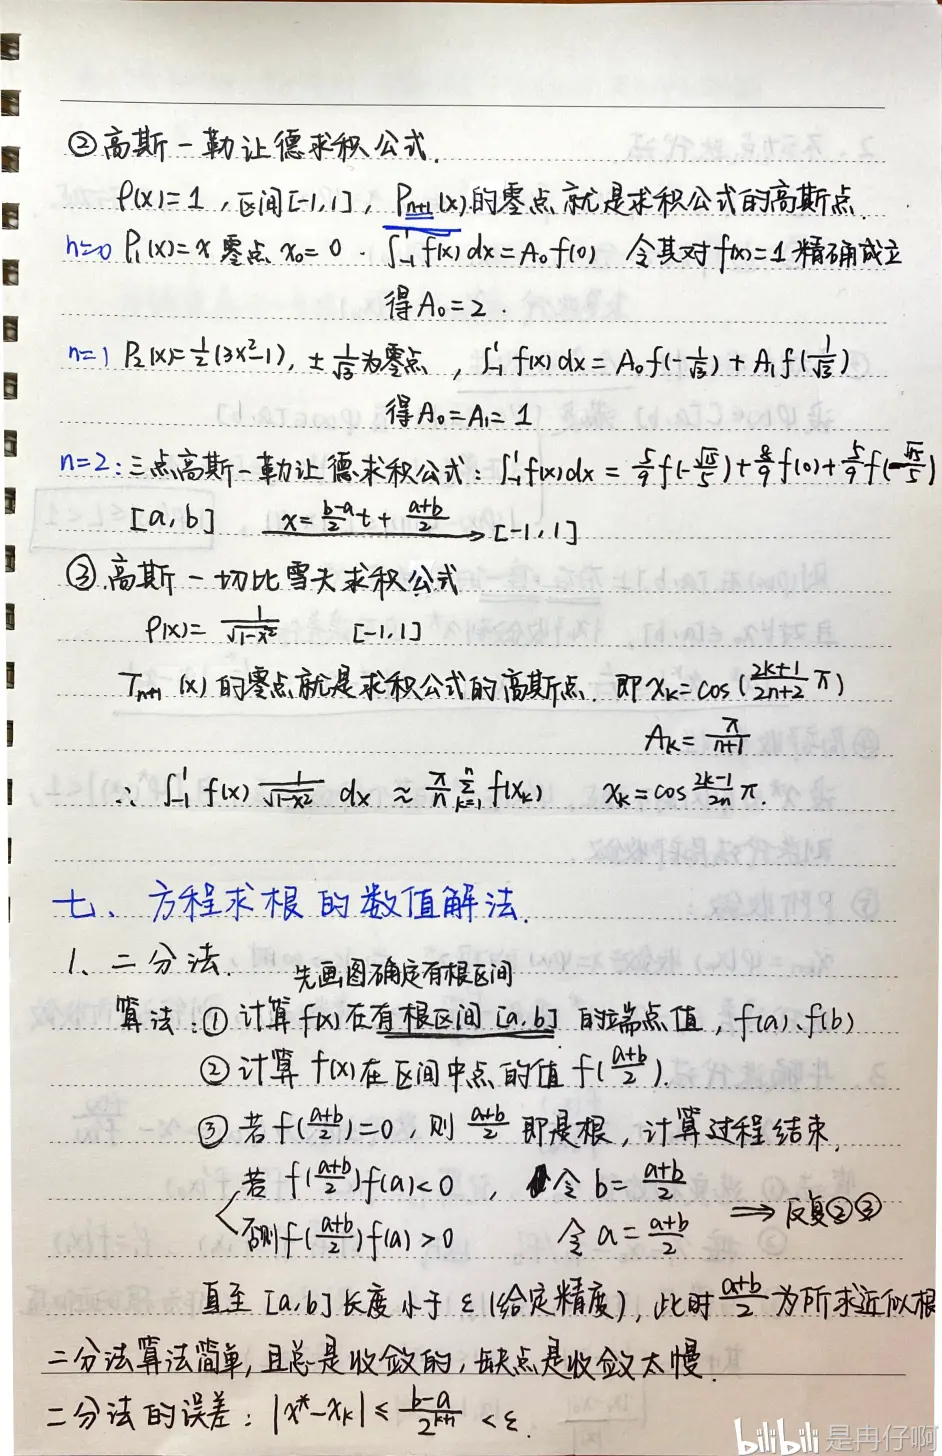 ②高斯－勒让德求积公式.
ρ(x)=1, 区间[-1,1], Pn+1(x)的零点就是求积公式的高斯点.
n=0 P₁(x)=x 零点 x₀=0 . ∫₋₁¹ f(x)dx=A₀f(0) 令其对f(x)=1精确成立
得A₀=2.
n=1 P₂(x)=1/2(3x²-1), ±1/√3为零点, ∫₋₁¹ f(x)dx=A₀f(-1/√3)+A₁f(1/√3)
得A₀=A₁=1
n=2:三点高斯－勒让德求积公式:∫₋₁¹f(x)dx=5/9f(-√15/5)+8/9f(0)+5/9f(√15/5)
[a,b] x=b-a/2 t+a+b/2 → [-1,1]
③高斯－切比雪夫求积公式
ρ(x)=1/√1-x² [-1,1]
Tn+1(x)的零点就是求积公式的高斯点. 即xₖ=cos(2k+1/2n+2 π)
Aₖ=π/n+1
∴∫₋₁¹ f(x) 1/√1-x² dx≈π/n Σₖ₌₁ⁿ f(xₖ) xₖ=cos 2k-1/2n π.
七、方程求根的数值解法.
1、二分法. 先画图确定有根区间
算法:①计算f(x)在有根区间[a,b]的端点值,f(a)、f(b)
②计算f(x)在区间中点的值f(a+b/2).
③若f(a+b/2)=0,则a+b/2即是根,计算过程结束.
若f(a+b/2)f(a)<0, 令b=a+b/2
否则f(a+b/2)f(a)>0 令a=a+b/2 ⇒反复②③
直至[a,b]长度小于ε(给定精度),此时a+b/2为所求近似根
二分法算法简单,且总是收敛的,缺点是收敛太慢.
二分法的误差:|x*-xₖ|≤b-a/2ᵏ⁺¹<ε.
bilibili 是冉仔啊